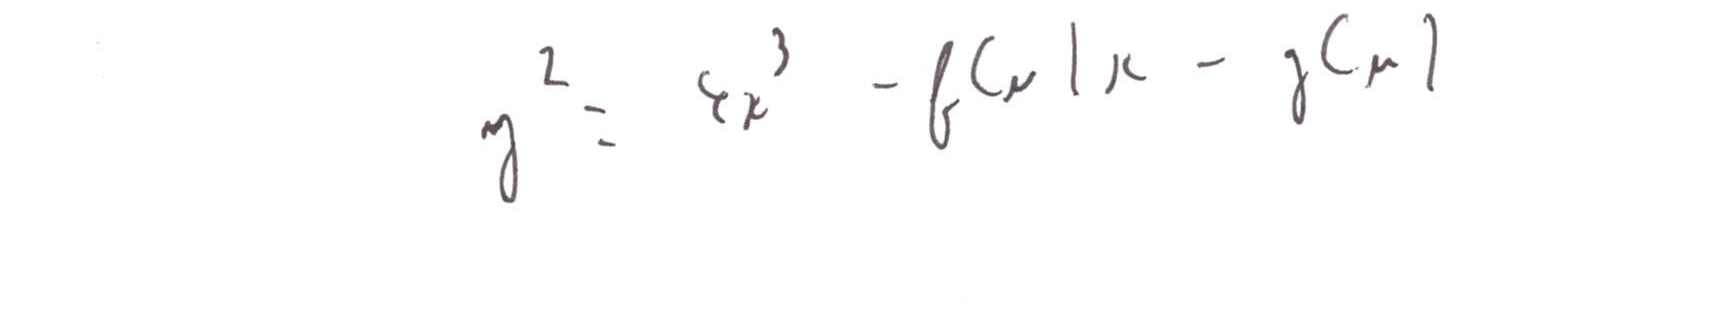 y² = 4x³ - f(u)x - g(u)